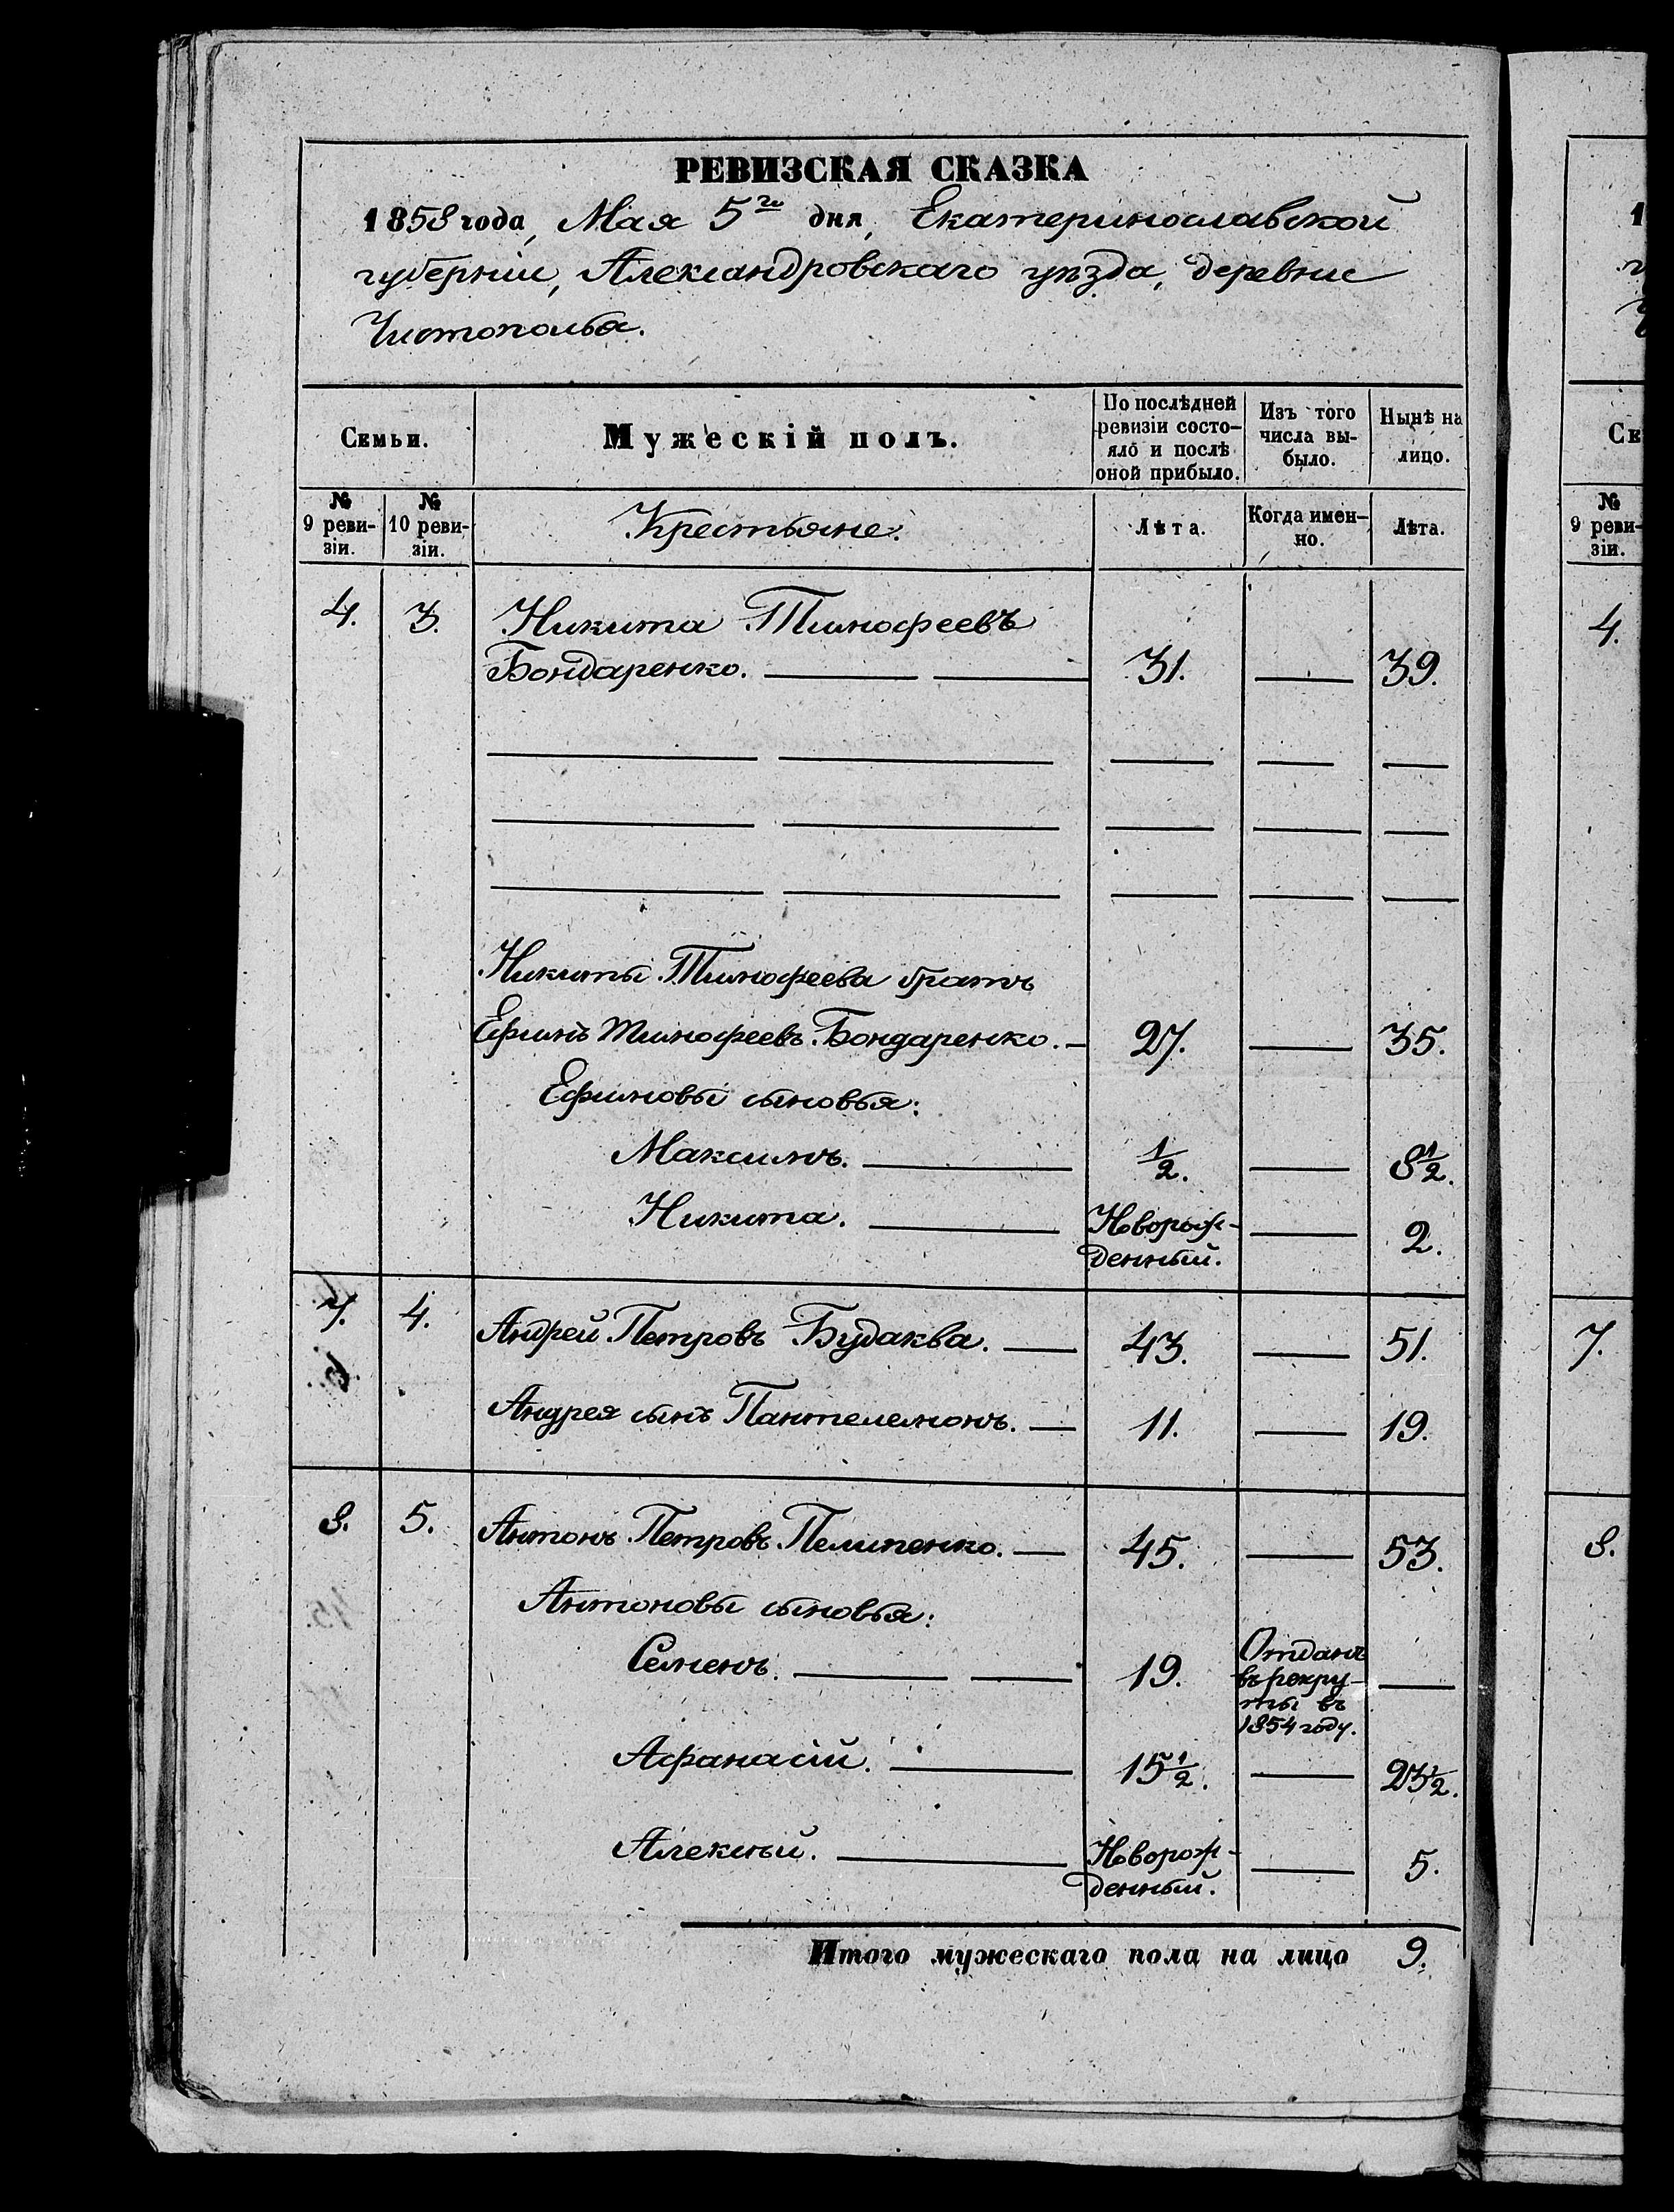 РЕВИЗСКАЯ СКАЗКА
1858 года, Мая 5го дня, Екатеринославской
губернии, Александровскаго уѣзда, деревни
Чистополья.
Семьи.
Мужескій полъ.
По послѣдней
ревизіи состо-
яло и послѣ
оной прибыло.
Изъ того
числа вы-
было.
Нынѣ на
лицо.
№
9 реви-
зіи.
№
10 реви-
зіи.
Крестьяне.
Лѣта.
Когда имен-
но.
Лѣта.
4. 3. Никита Тимофеевъ
Бондаренко. 31. 39.
Никиты Тимофеева братъ
Ефимъ Тимофеевъ Бондаренко. 27. 35.
Ефимовы сыновья:
Максимъ. 1/2. 8 1/2.
Никита. Новорож-
денный. 2.
7. 4. Андрей Петровъ Будаква. 43. 51.
Андрея сынъ Пантелемонъ. 11. 19.
8. 5. Антонъ Петровъ Пелипенко. 45. 53.
Антоновы сыновья:
Семенъ. 19. Отданъ
въ рекру-
ты въ
1854 году.
Афанасій. 15 1/2. 23 1/2.
Алексѣй. Новорож-
денный. 5.
Итого мужескаго пола на лицо 9.
1
Се
№
9 реви-
зіи.
4.
7.
8.